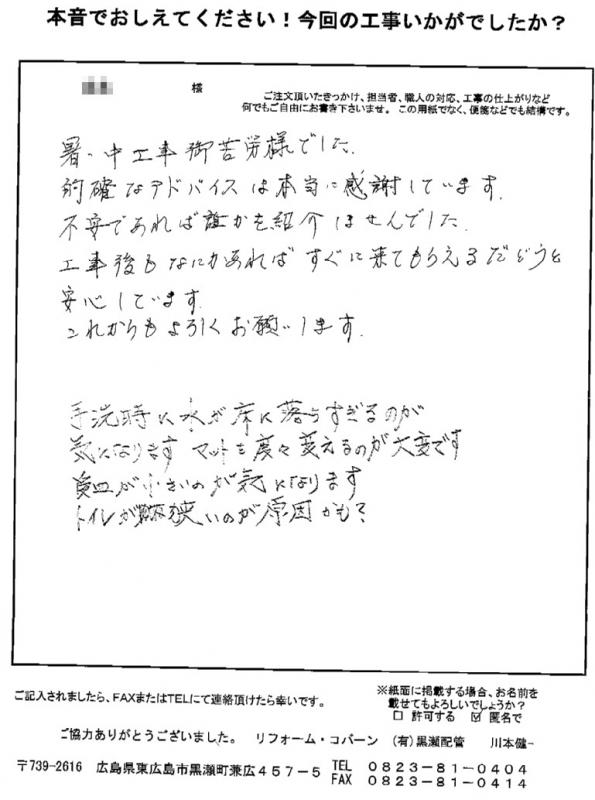 本音でおしえてください！今回の工事いかがでしたか？
様
ご注文頂いたきっかけ、担当者、職人の対応、工事の仕上がりなど
何でもご自由にお書き下さいませ。この用紙でなく、便箋などでも結構です。
暑い中工事御苦労様でした。
的確なアドバイスは本当に感謝しています。
不安であれば誰かを紹介はせんでした。
工事後もなにかあればすぐに来てもらえるだどうと
安心しています。
これからもよろしくお願いします。
手洗時に水が床に落ちすぎるのが
気になります マットを度々変えるのが大変です
皿が小さいのが気になります
トイレが狭いのが原因かも？
ご記入されましたら、FAXまたはTELにて連絡頂けたら幸いです。
※紙面に掲載する場合、お名前を
載せてもよろしいでしょうか？
□ 許可する ☑ 匿名で
ご協力ありがとうございました。 リフォーム・コバーン （有）黒瀬配管 川本健一
〒739-2616 広島県東広島市黒瀬町兼広４５７－５ TEL ０８２３－８１－０４０４
FAX ０８２３－８１－０４１４